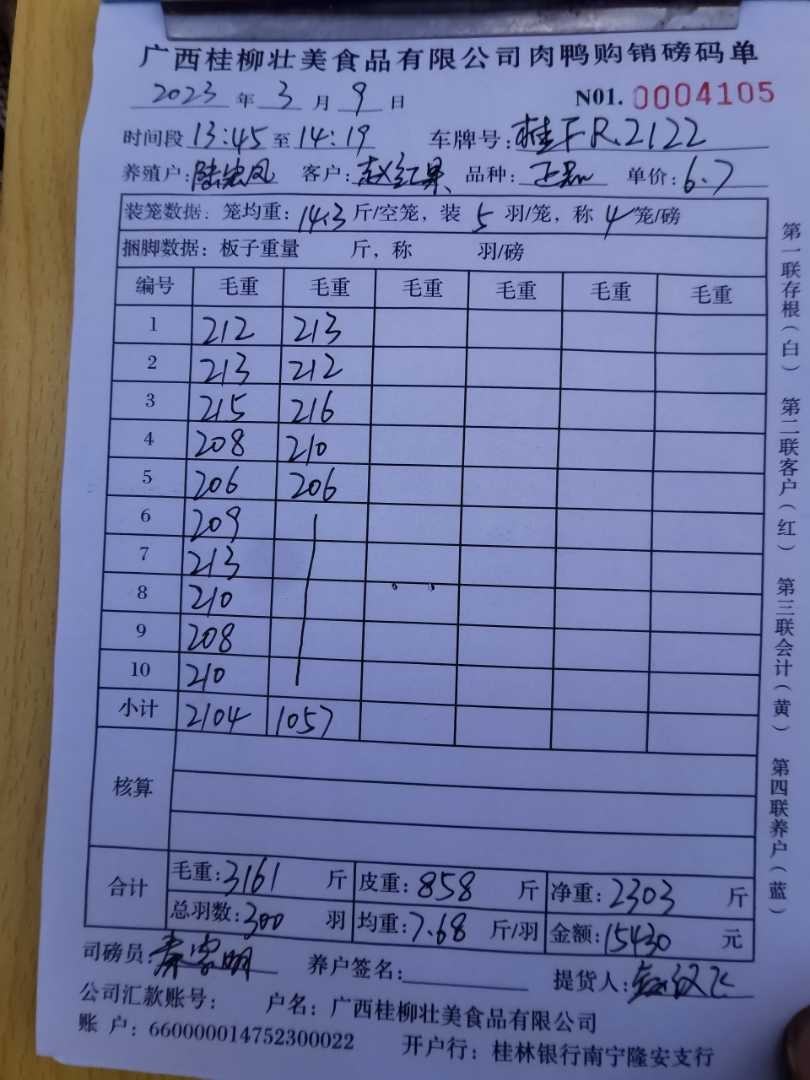 广西桂柳壮美食品有限公司肉鸭购销磅码单
2023 年 3 月 9 日 N01. 0004105
时间段 13:45 至 14:19 车牌号: 桂FR2122
养殖户: 陆 凤 客户: 赵红果 品种: 单价: 6.7
装笼数据: 笼均重: 14.3 斤/空笼, 装 5 羽/笼, 称 4 笼/磅
捆脚数据: 板子重量 斤, 称 羽/磅
编号 毛重 毛重 毛重 毛重 毛重 毛重
1 212 213
2 213 212
3 215 216
4 208 210
5 206 206
6 209
7 213
8 210
9 208
10 210
小计 2104 1057
核算
合计 毛重: 3161 斤 皮重: 858 斤 净重: 2303 斤
总羽数: 300 羽 均重: 7.68 斤/羽 金额: 15430 元
司磅员 秦 明 养户签名: 提货人: 赵
公司汇款账号: 户名: 广西桂柳壮美食品有限公司
账 户: 660000014752300022 开户行: 桂林银行南宁隆安支行
第一联存根(白) 第二联客户(红) 第三联会计(黄) 第四联养户(蓝)